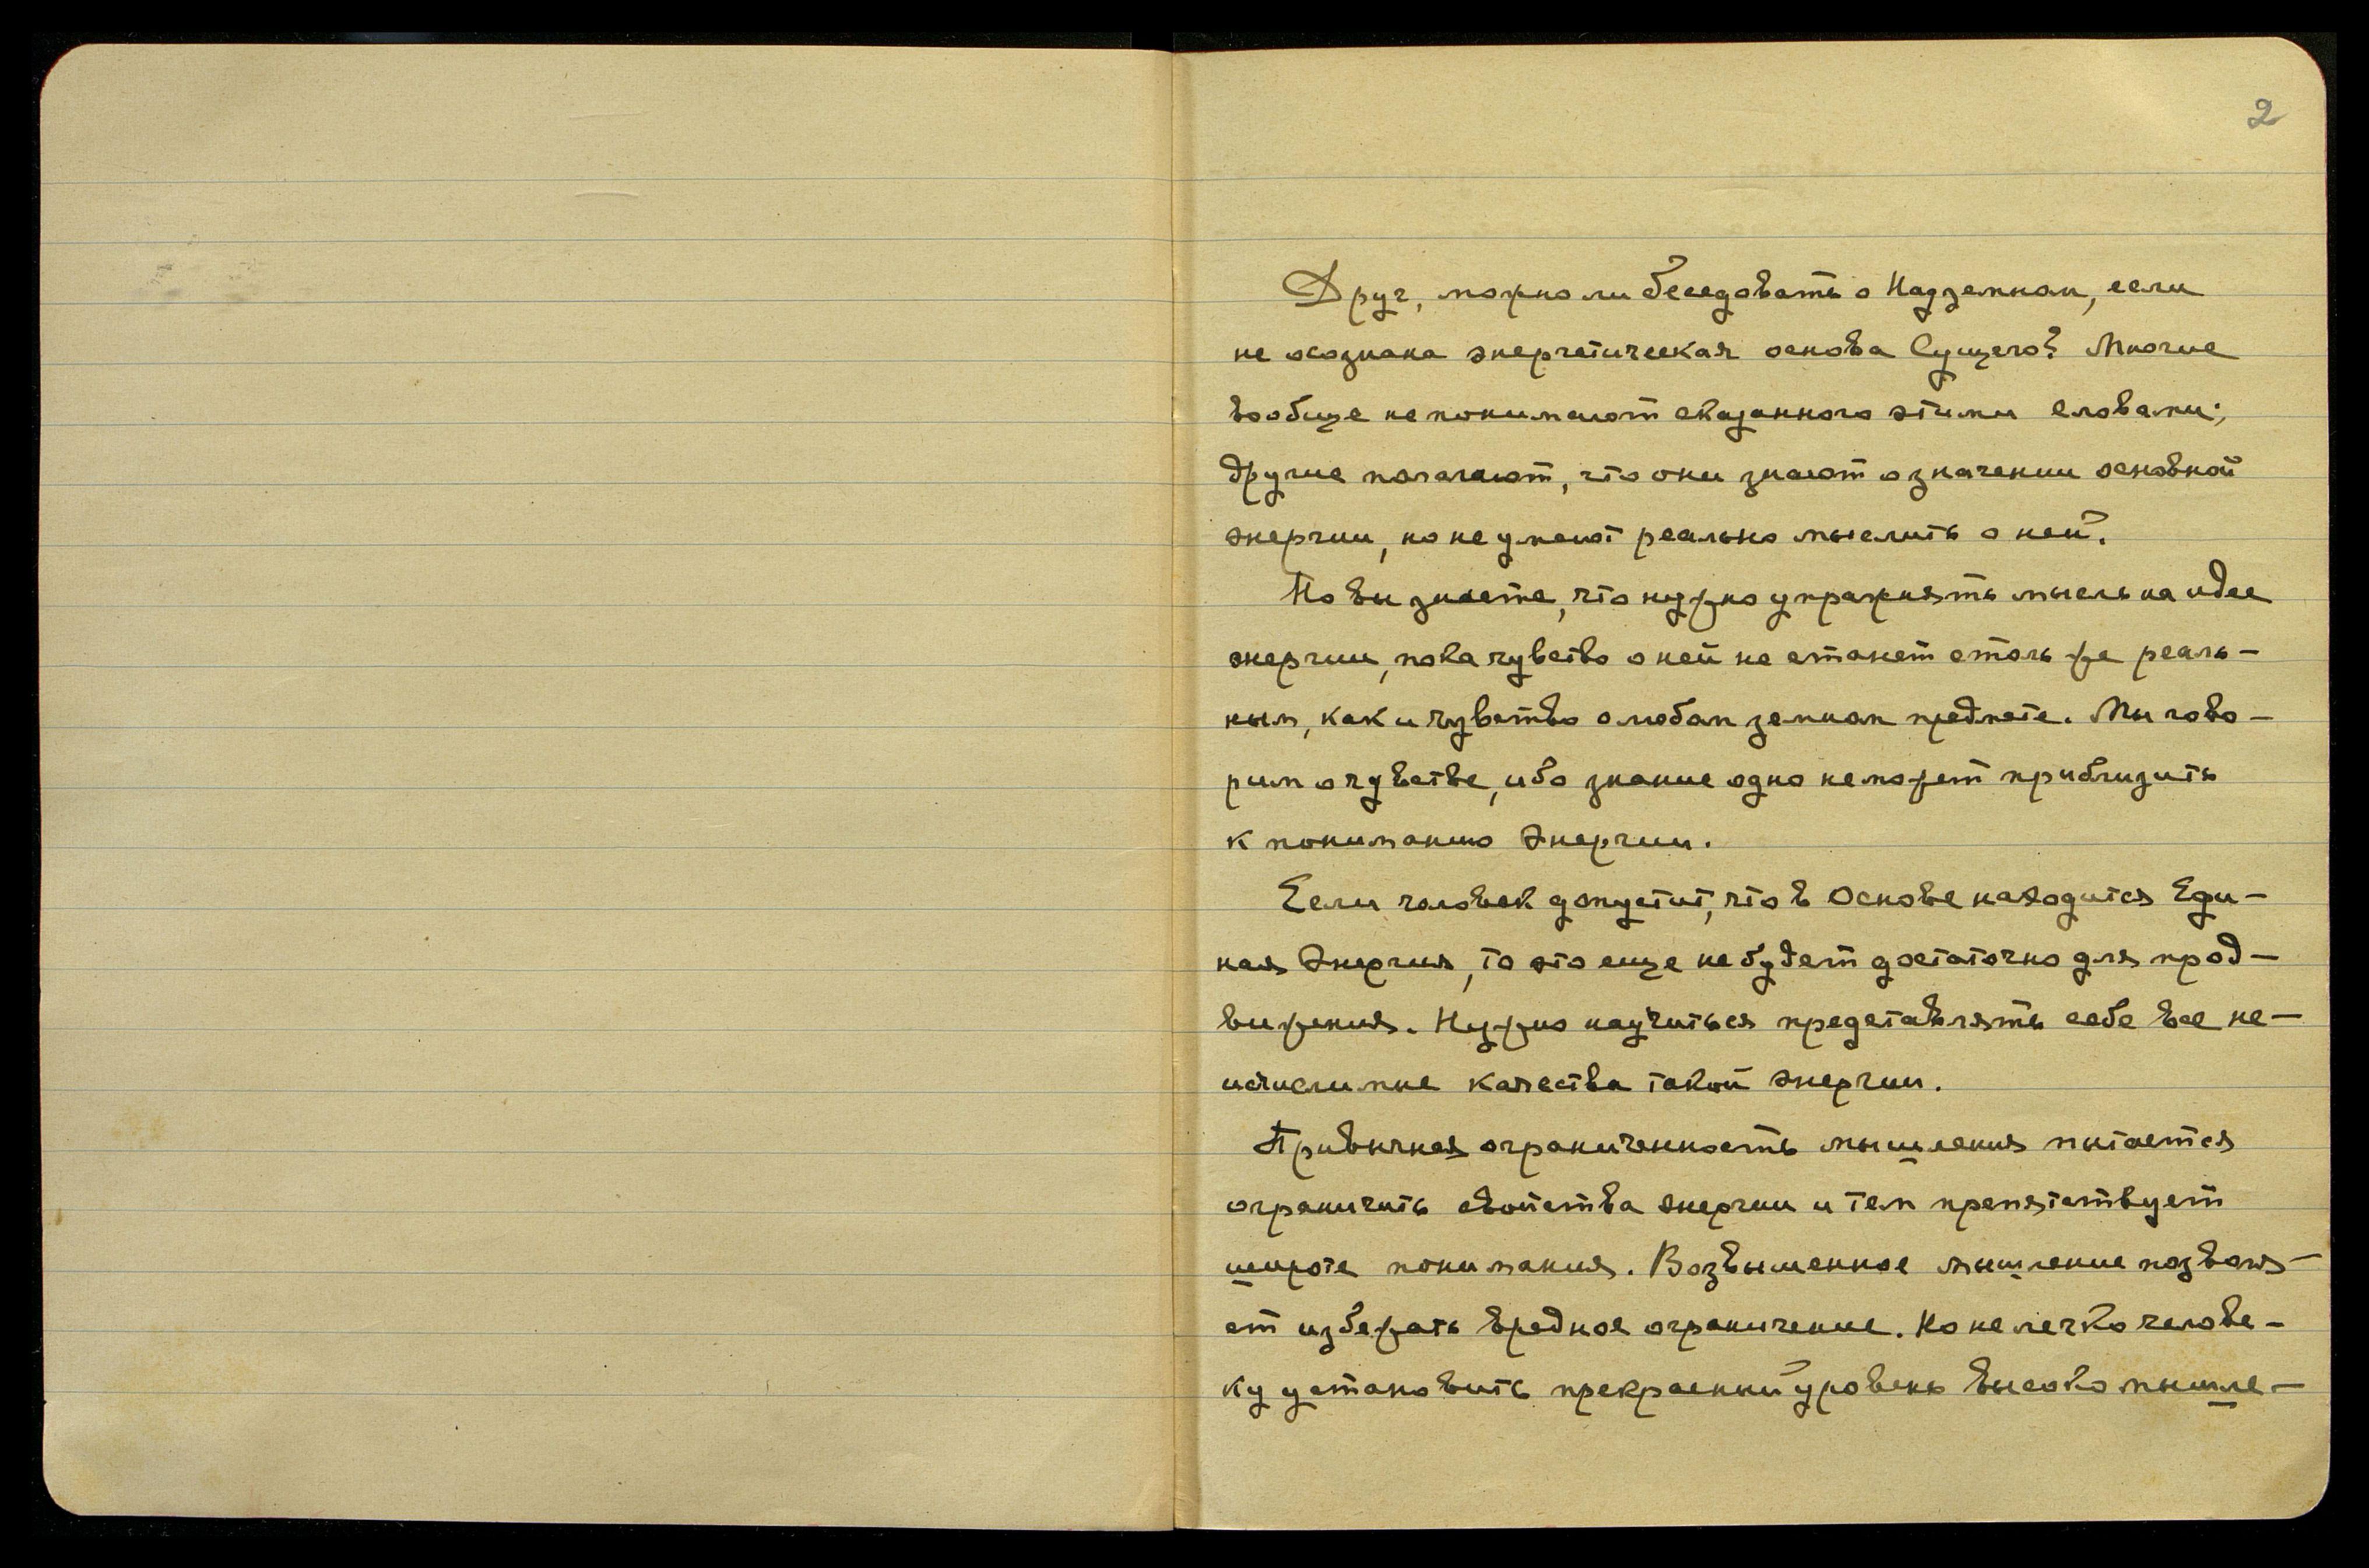 2
Друг, можно ли беседовать о Надземном, если
не осознана энергетическая основа Сущего? Многие
вообще не понимают сказанного этими словами;
другие полагают, что они знают о значении основной
энергии, но не умеют реально мыслить о ней.
Но вы знаете, что нужно упражнять мысль на идее
энергии, пока чувство о ней не станет столь же реаль–
ным, как и чувство о любом земном предмете. Мы гово–
рим о чувстве, ибо знание одно не может приблизить
к пониманию Энергии.
Если человек допустит, что в Основе находится Еди–
ная Энергия, то это еще не будет достаточно для прод–
вижения. Нужно научиться представлять себе все не–
исчислимые качества такой энергии.
Привычная ограниченность мышления пытается
ограничить свойства энергии и тем препятствует
широте понимания. Возвышенное мышление позволя–
ет избежать вредное ограничение. Но не легко челове–
ку установить прекрасный уровень высокомышле–